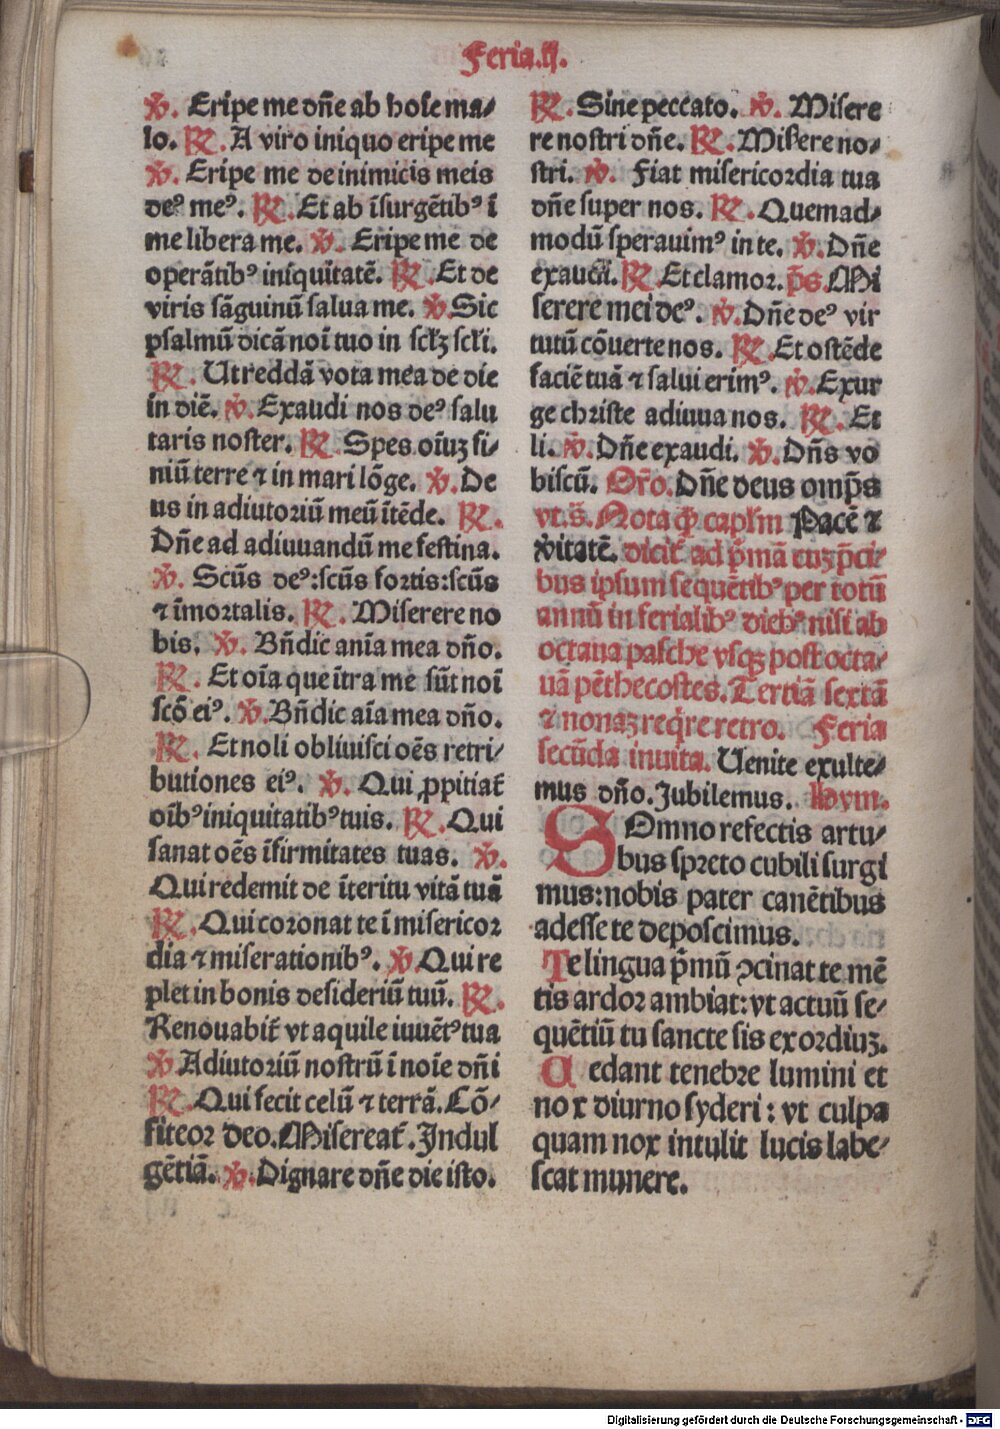 Feria.ij.
℣. Eripe me dñe ab hoſe ma⸗
lo. ℟. A viro iniquo eripe me
℣. Eripe me de inimicis meis
deꝰ meꝰ. ℟. Et ab ĩſurgẽtibꝰ ĩ
me libera me. ℣. Eripe me de
operãtibꝰ iniquitatẽ. ℟. Et de
viris ſãguinũ ſalua me. ℣. Sic
pſalmũ dicã noĩ tuo in ſcłꝫ ſcłi.
℟. Ut reddã vota mea de die
in diẽ. ℣. Exaudi nos deꝰ ſalu
taris noſter. ℟. Spes oĩuꝫ fi⸗
niũ terre ⁊ in mari lõge. ℣. De
us in adiutoriũ meũ ĩtẽde. ℟.
Dñe ad adiuuandũ me feſtina.
℣. Scũs deꝰ:ſcũs fortis:ſcũs
⁊ ĩmortalis. ℟. Miſerere no
bis. ℣. Bñdic anĩa mea dño.
℟. Et oĩa que ĩtra me ſũt noĩ
ſcõ eiꝰ. ℣. Bñdic aĩa mea dño.
℟. Et noli obliuiſci oẽs retri⸗
butiones eiꝰ. ℣. Qui ꝓpitiat᷑
oĩbꝰ iniquitatibꝰ tuis. ℟. Qui
ſanat oẽs ĩfirmitates tuas. ℣.
Qui redemit de ĩteritu vitã tuã
℟. Qui coꝛonat te ĩ miſericoꝛ
dia ⁊ miſerationibꝰ. ℣. Qui re
plet in bonis deſideriũ tuũ. ℟.
Renouabit᷑ vt aquile iuuẽtꝰ tua
℣. Adiutoriũ noſtrũ ĩ noĩe dñi
℟. Qui fecit celũ ⁊ terrã. Cõ⸗
fiteoꝛ deo. Miſereat᷑. Indul
gẽtiã. ℣. Dignare dñe die iſto.
℟. Sine peccato. ℣. Miſere
re noſtri dñe. ℟. Miſere no⸗
ſtri. ℣. Fiat miſericoꝛdia tua
dñe ſuper nos. ℟. Quemad⸗
modũ ſperauimꝰ in te. ℣. Dñe
exaudi. ℟. Et clamoꝛ. p̃s. Mi
ſerere mei deꝰ. ℣. Dñe deꝰ vir
tutũ cõuerte nos. ℟. Et oſtẽde
faciẽ tuã ⁊ ſalui erimꝰ. ℣. Exur
ge chriſte adiuua nos. ℟. Et
li. ℣. Dñe exaudi. ℣. Dñs vo
biſcũ. Oꝛ̃o. Dñe deus omp̃s
vt.s̃. Nota ꝙ capl̃m Pacẽ ⁊
v̾itatẽ. dicit᷑ ad p̃mã cuꝫ p̃ci⸗
bus ipſum ſequẽtibꝰ per totũ
annũ in ferialibꝰ diebꝰ niſi ab
octaua paſche vſqꝫ poſt octa⸗
uã pẽthecoſtes. Tertiã ſextã
⁊ nonaꝫ req̃re retro. Feria
ſecũda inuita. Uenite exulte⸗
mus dño. Jubilemus. Hym.
SOmno refectis artu⸗
bus ſpreto cubili ſurgi
mus:nobis pater canẽtibus
adeſſe te depoſcimus.
Te lingua p̃mũ ꝯcinat te mẽ
tis ardoꝛ ambiat: vt actuũ ſe⸗
quẽtiũ tu ſancte ſis exoꝛdiuꝫ.
Cedant tenebꝛe lumini et
nox diurno ſyderi : vt culpa
quam nox intulit lucis labe⸗
ſcat munere.
Digitalisierung gefördert durch die Deutsche Forschungsgemeinschaft - DFG